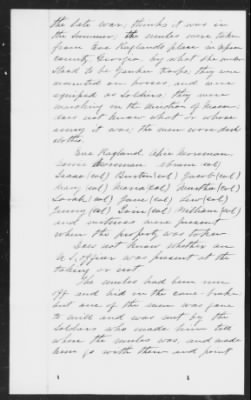 the late war, thinks it was in
the Summer; the mules were taken
from Eva Raglands place in upson
county Georgia, by what she under
stood to be yankee troops; they were
mounted on horses and were
equiped as Soldiers; they were
marching in the direction of Macon.
does not know what or whose
army it was; the men wore dark
clothes.
Eva Ragland
(col)
Isaac (col) Burton (col) Jacob (col)
Mary (col) Maria (col) Martha (col)
Sarah (col) Jane (col) (col)
Jenny (col) (col) William (col)
and mistress were present
when the property was taken
Does not know whether an
U.S. officer was present at the
taking or not.
The mules had been run
off and hid in the cane-brake
but one of the men was gone
to mill and was met by the
Soldiers who made him tell
where the mules was, and made
him go with them and point